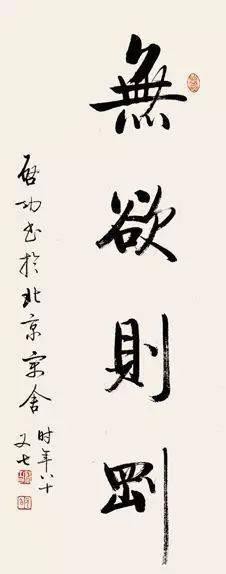 無欲則剛
啟功書於北京寓舍
时年八十
又七